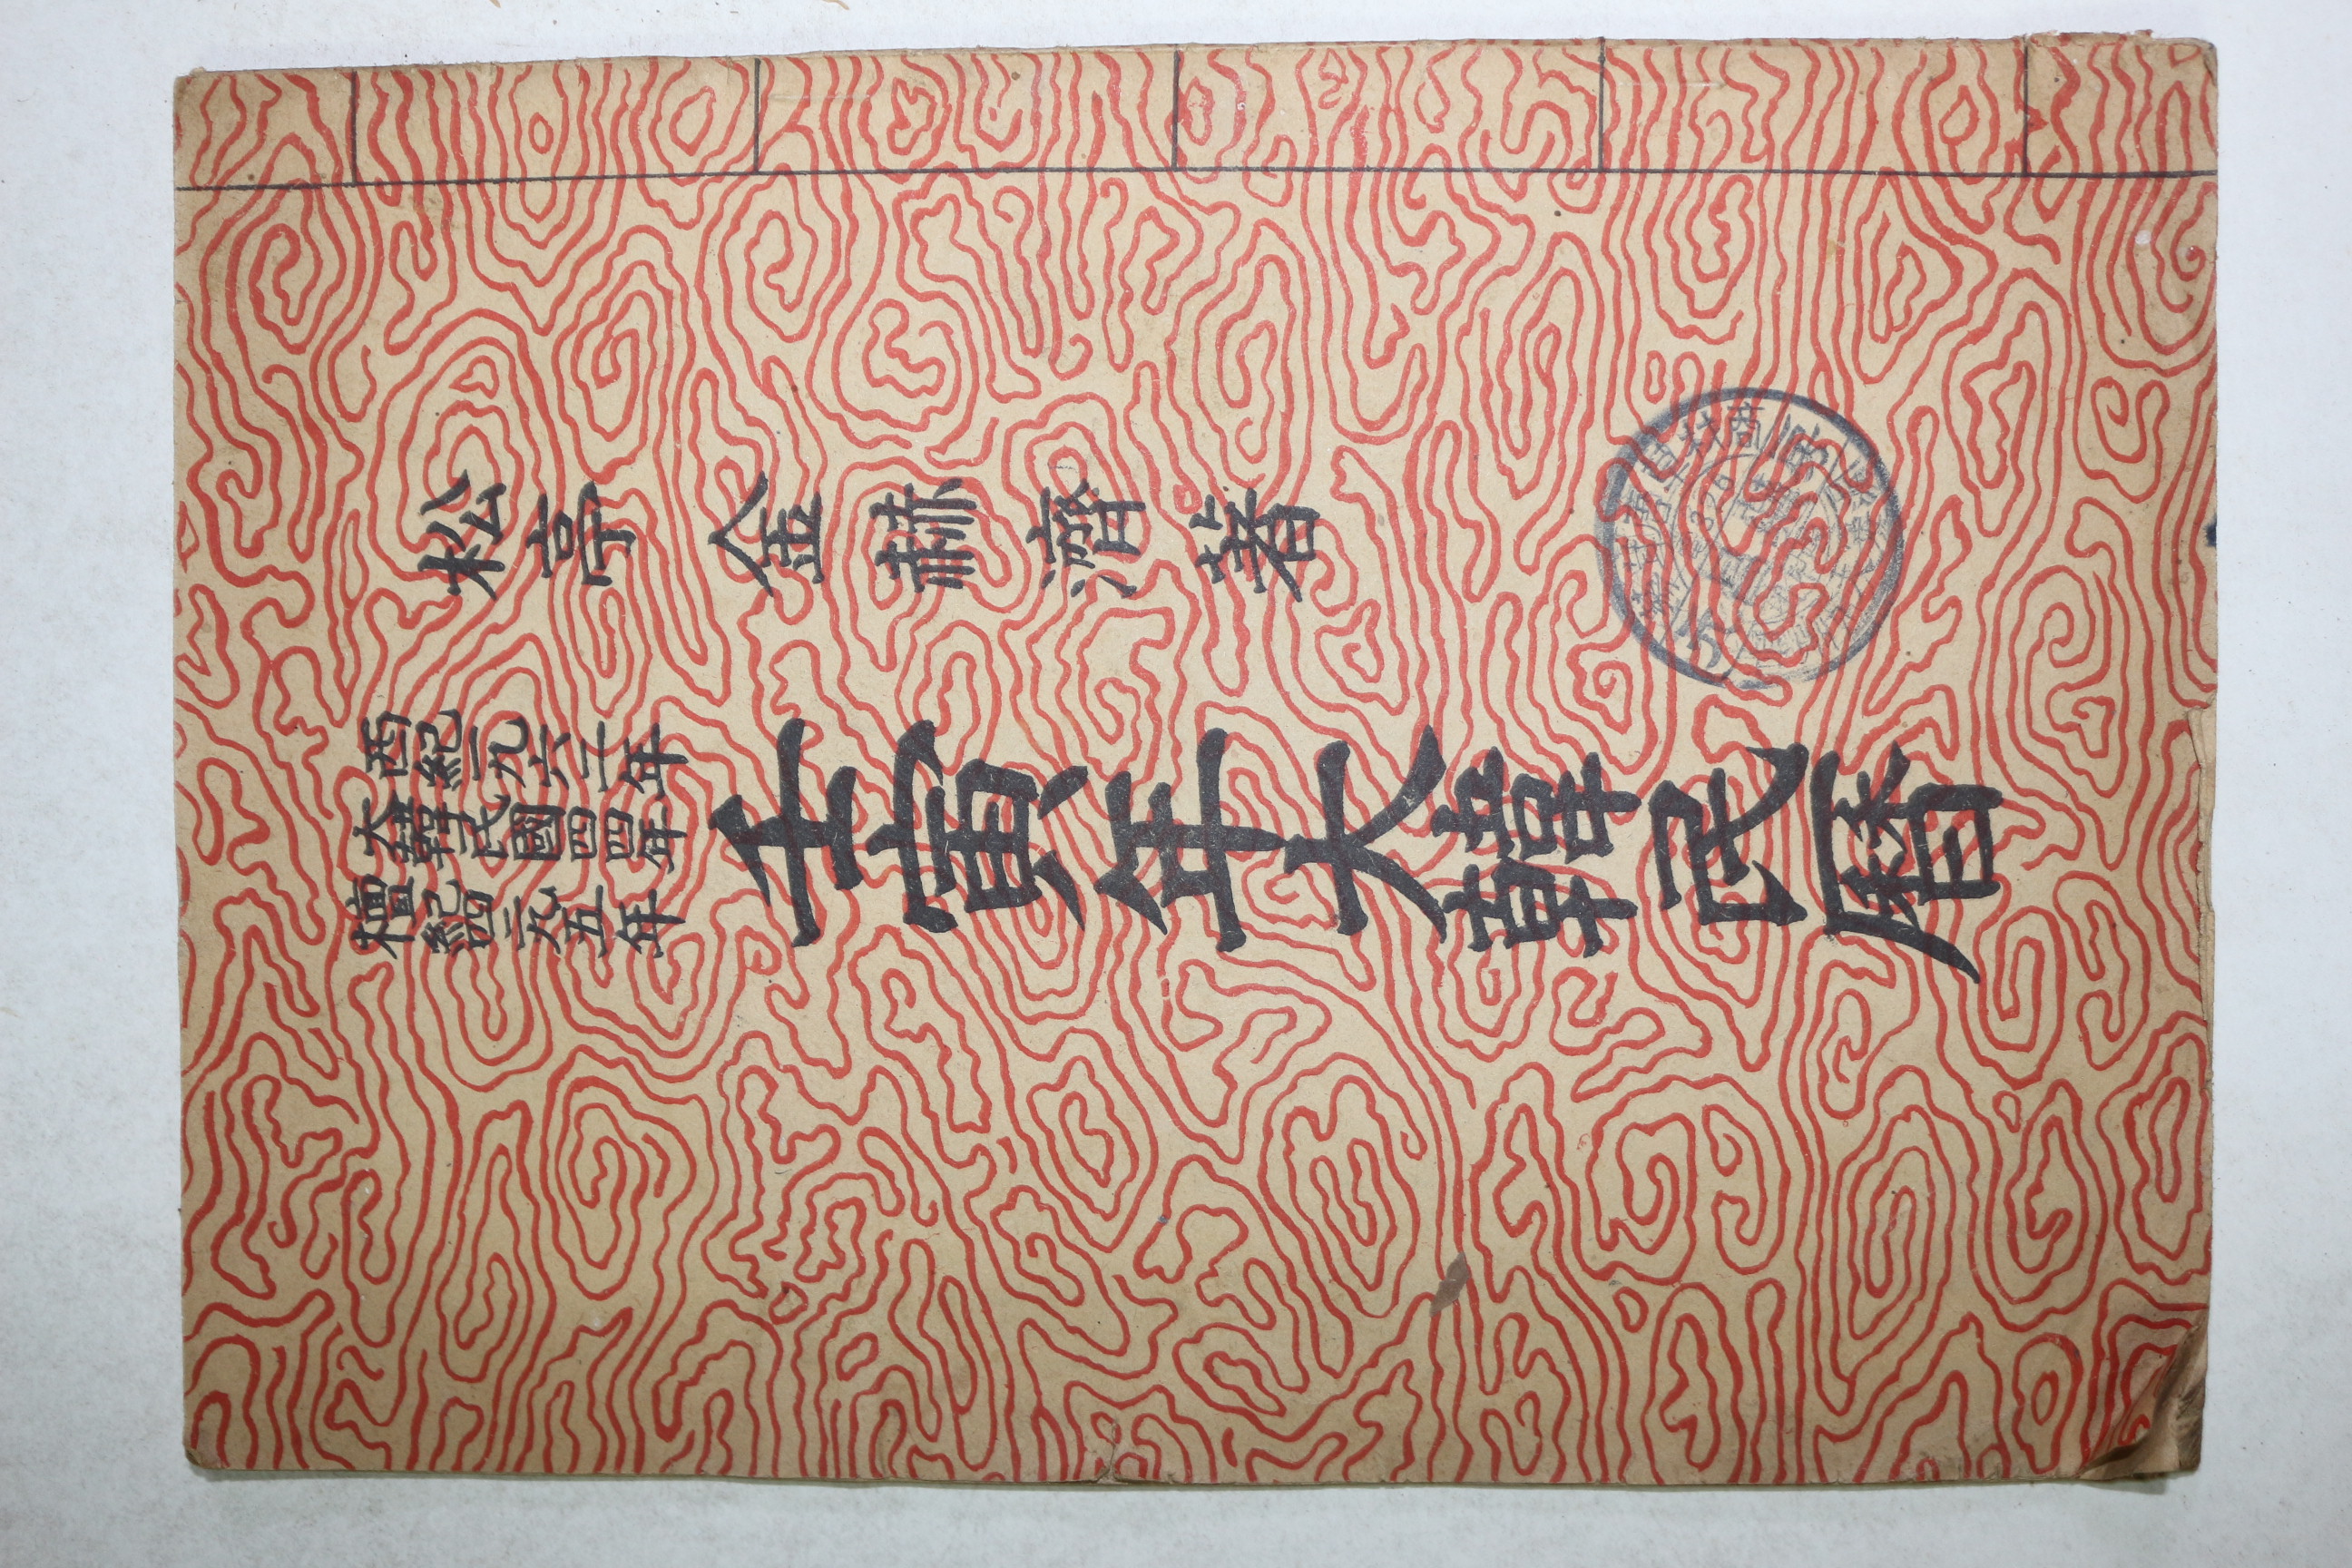 松亭 金赫濟 著
西紀一九六二年
大韓民國四四年
檀紀四二九五年
壬寅年大韓民曆